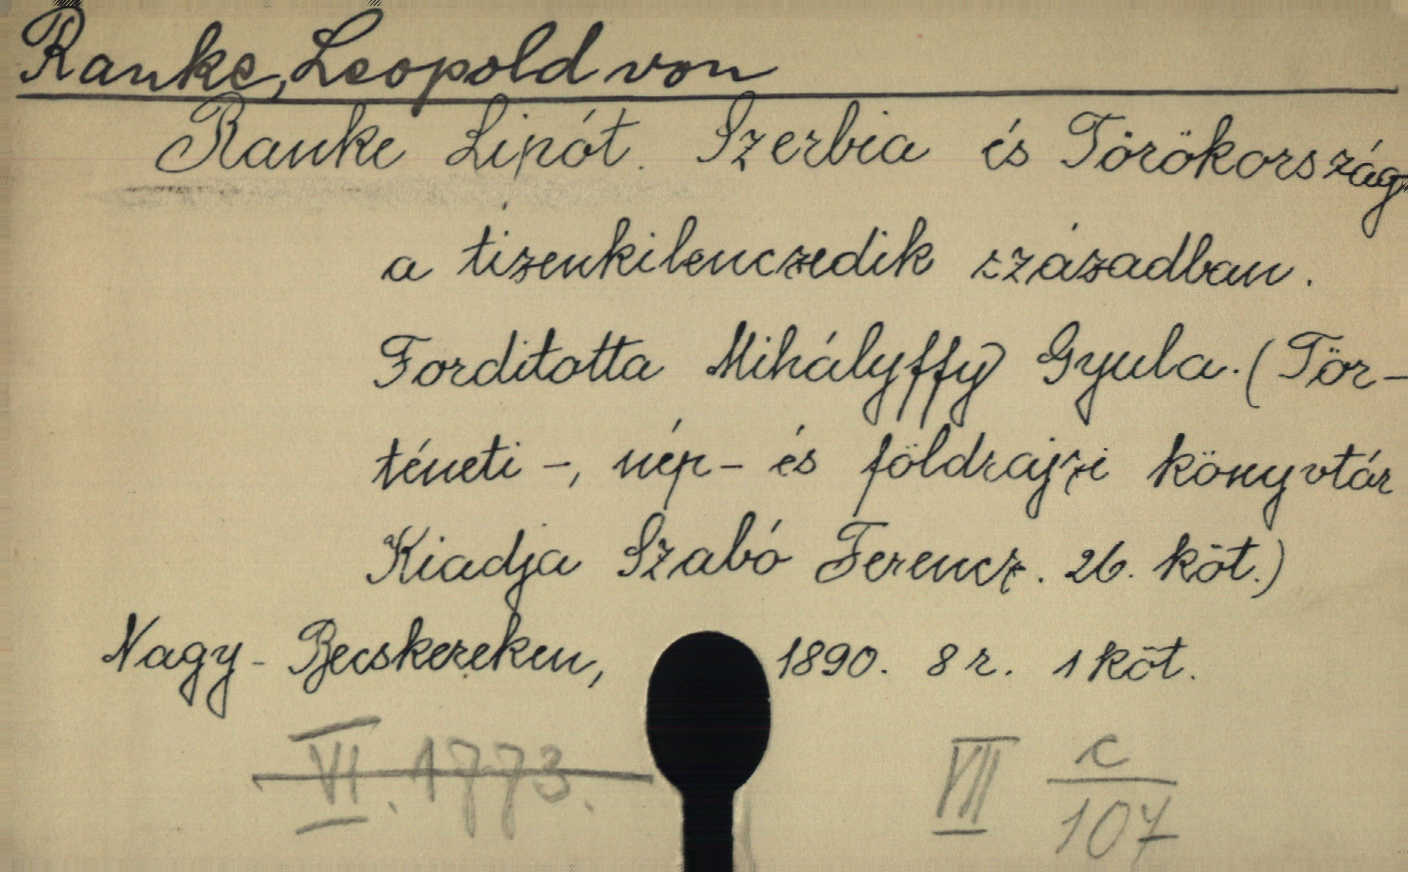 Ranke, Leopold von
Ranke Lipót. Szerbia és Törökország
a tizenkilenczedik században.
Forditotta Mihályffy Gyula. (Tör-
téneti -, nép- és földrajzi könyvtár
Kiadja Szabó Ferencz. 26. köt.)
Nagy-Becskereken, 1890. 8 r. 1 köt.
VI. 1773.
VII c/107